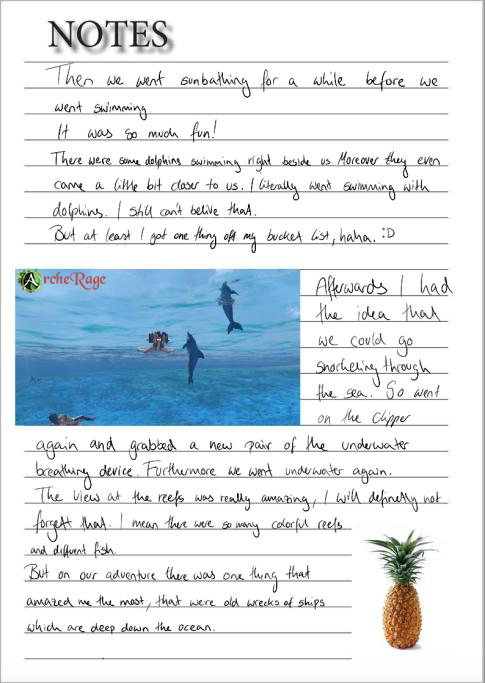 NOTES
Then we went sunbathing for a while before we
went swimming.
It was so much fun!
There were some dolphins swimming right beside us. Moreover they even
came a little bit closer to us. I literally went swimming with
dolphins. I still can't belive that.
But at least I got one thing off my bucket list, haha. :D
ArcheRage
Afterwards I had
the idea that
we could go
snorkeling through
the sea. So went
on the clipper
again and grabbed a new pair of the underwater
breathing device. Furthermore we went underwater again.
The view at the reefs was really amazing, I will definetly not
forgett that. I mean there were so many colorful reefs
and different fish.
But on our adventure there was one thing that
amazed me the most, that were old wrecks of ships
which are deep down the ocean.